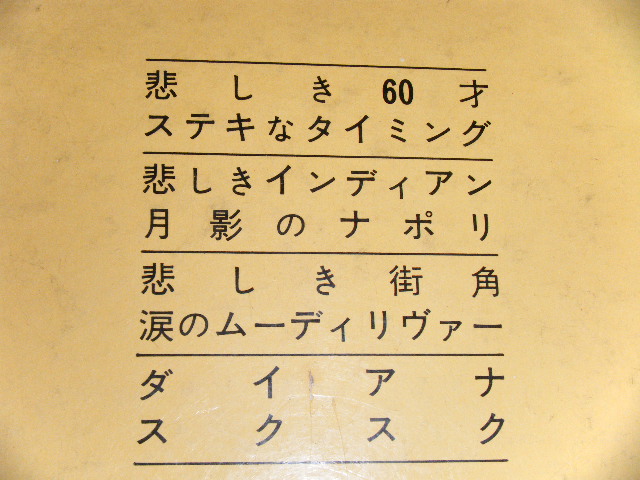 悲しき60才
ステキなタイミング
悲しきインディアン
月影のナポリ
悲しき街角
涙のムーディリヴァー
ダイアナ
スクスク